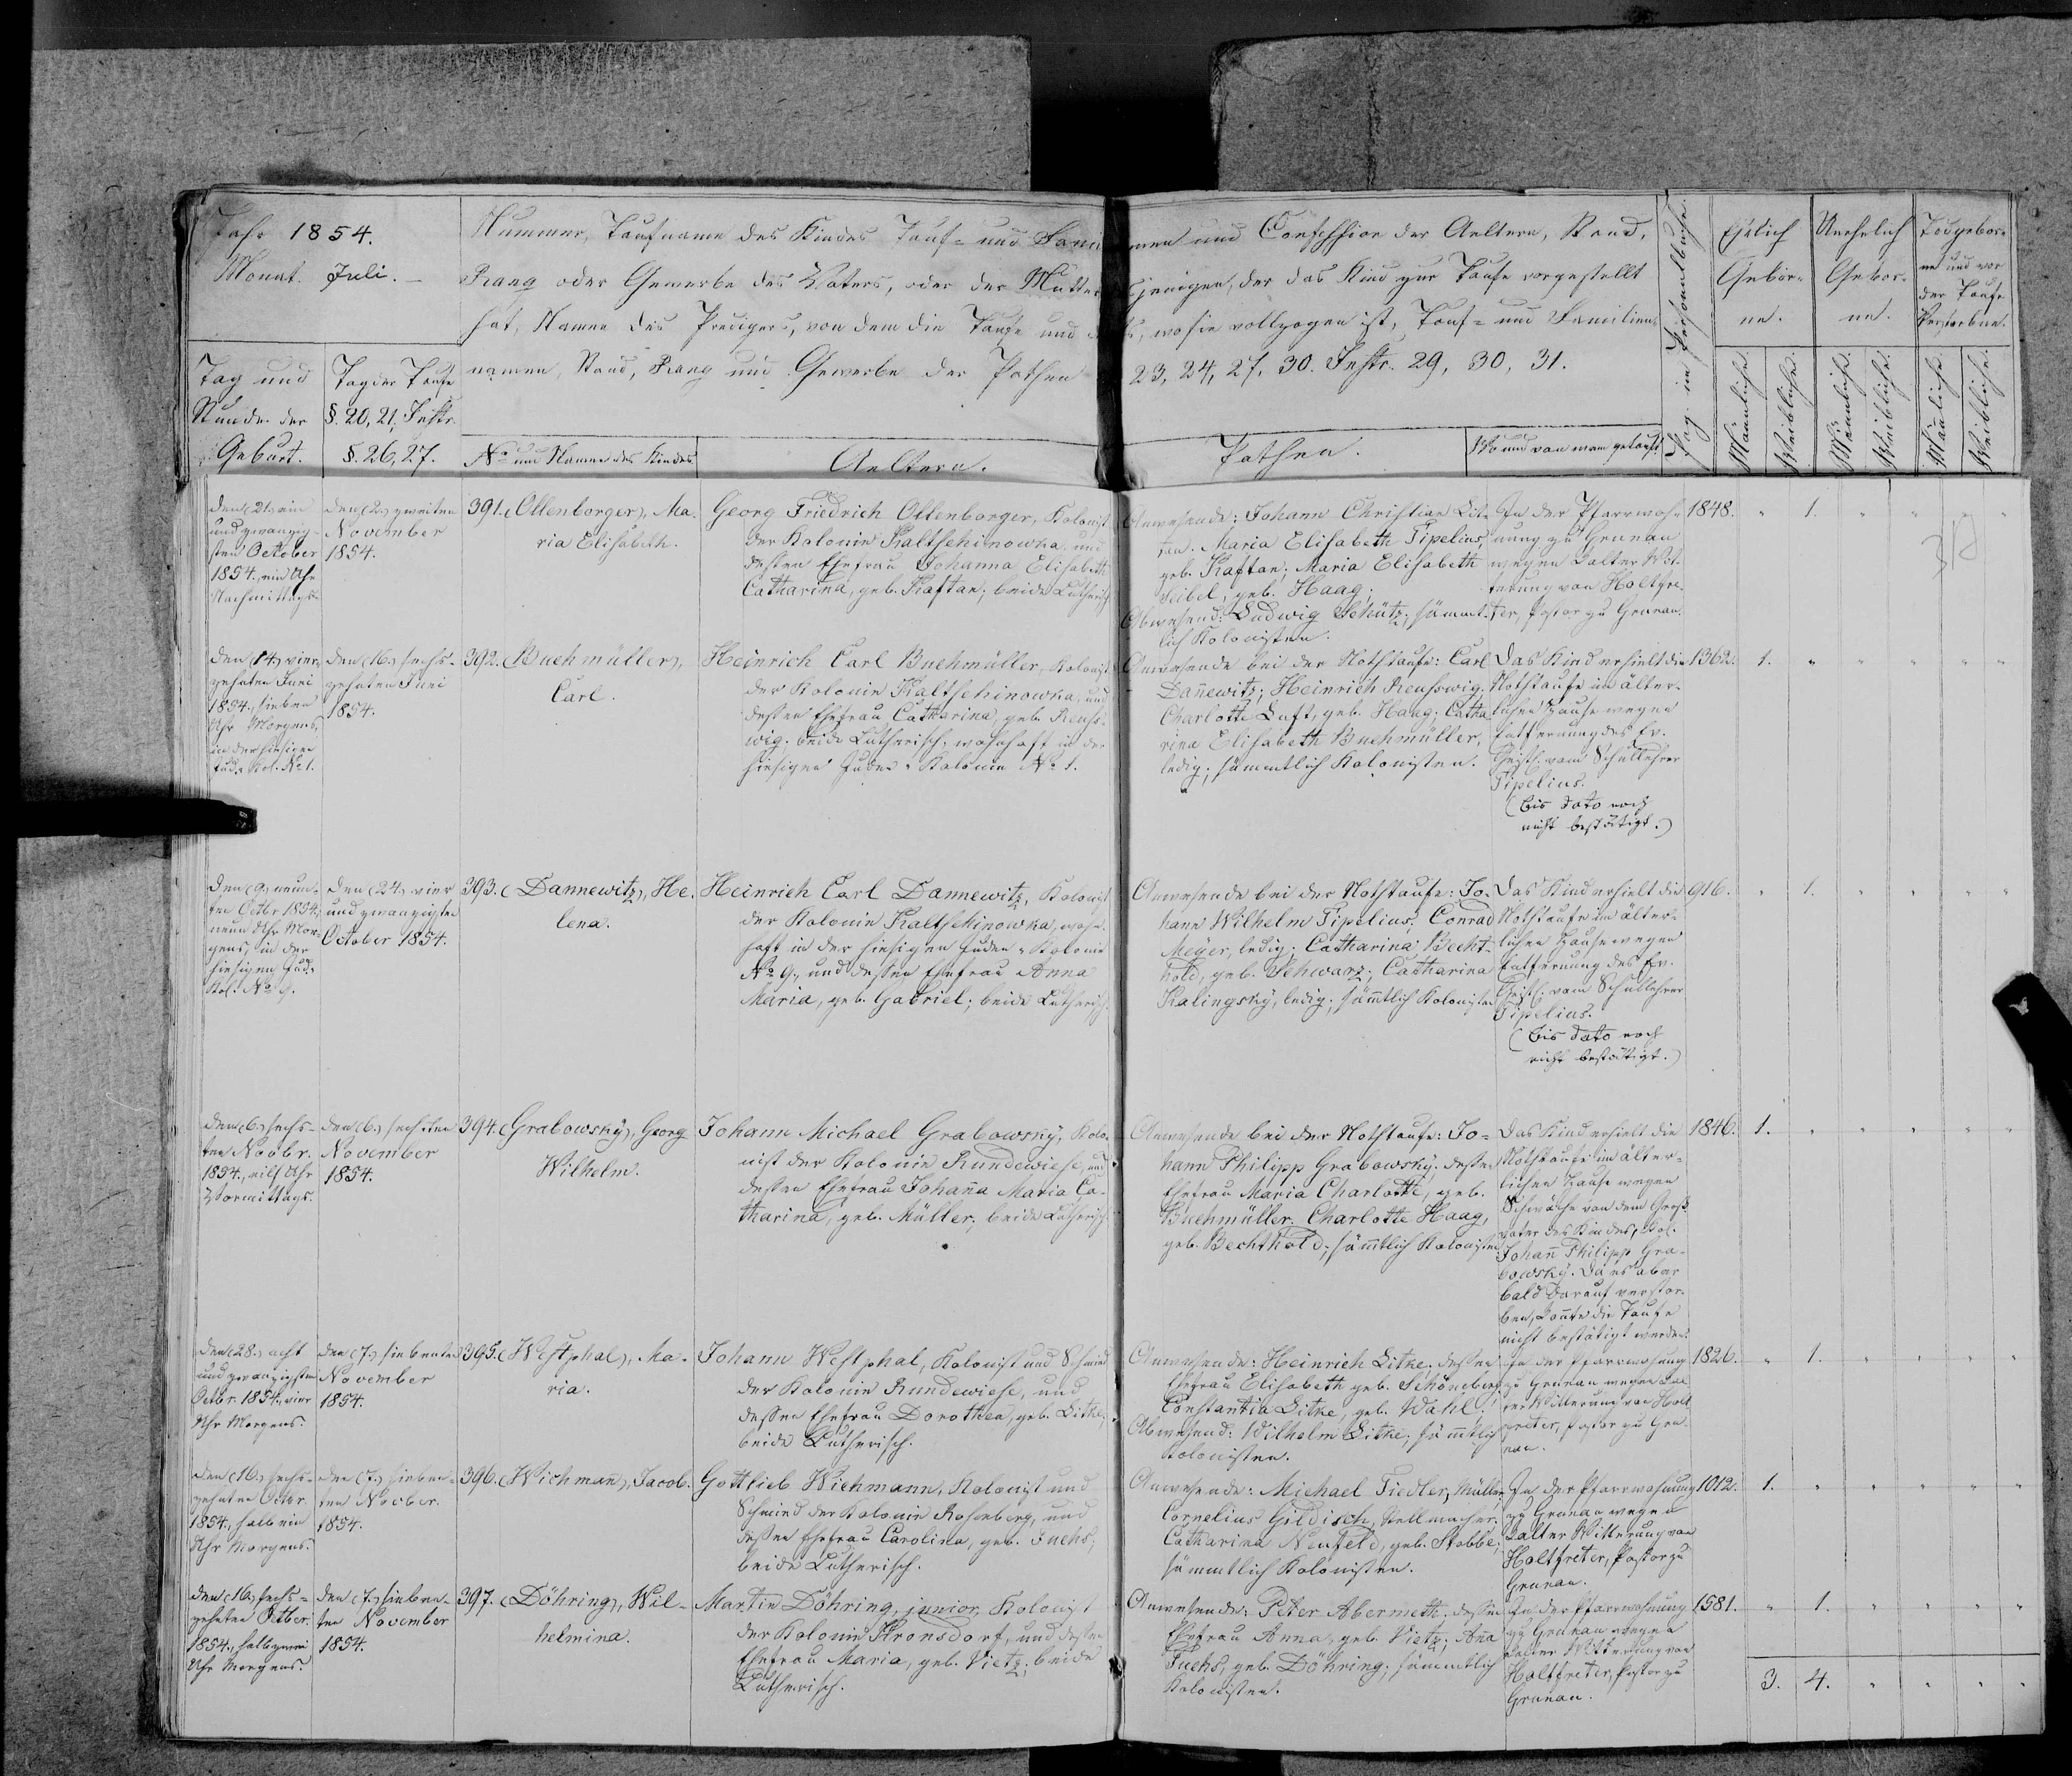 Jahr 1854.
Monat. Juli.
Nummer, Taufname des Kindes Tauf- und Fami
men und Confeshion der Aeltern, Stand,
Rang oder Gewerbe des Vaters, oder der Mutter
jenigen, der das Kind zur Taufe vorgestellt
hat, Namen des Predigers, von dem die Taufe und
wo sie vollzogen ist, Tauf- und Familien
namen, Stand, Rang und Gewerbe der Pathen
23, 24, 27, 30. Instr. 29, 30, 31.
Pag. im Personalbuche.
Ehelich
Gebor-
ne.
Unehelich
Gebor-
ne.
Todgebor-
ne und vor
der Taufe
Verstorbne.
Tag und
Stunde der
Geburt.
Tag der Taufe
§. 20, 21. Instr.
§. 26, 27.
No und Namen des Kindes
Aeltern.
Pathen.
Wo und von wem getauft
Männliche.
Weibliche.
Männliche.
Weibliche.
Männliche.
Weibliche.
den (21.) ein
und zwanzig-
sten October
1854., ein Uhr
Nachmittags.
den (2.) zweiten
November
1854.
391. (Ollenborger), Ma-
ria Elisabeth.
Georg Friedrich Ollenborger, Kolonist
der Kolonie Kaltschinowka und
dessen Ehefrau Johanna Elisabeth
Catharina, geb. Kaftan; beide Lutherisch
Anwesende: Johann Christian
Maria Elisabeth Tipelius,
geb. Kaftan; Maria Elisabeth
Seibel, geb. Haag;
Abwesend: Ludwig Schütz; sämmt-
lich Kolonisten.
In der Pfarrwoh-
nung zu Grunau
wegen kalter Wit-
terung von Holtfre-
ter, Pastor zu Grunau.
1848. " 1. " " " "
den (14.) vier-
zehnten Juni
1854., sieben
Uhr Morgens,
in der hiesigen
Jud. Kol. No 1.
den (16.) sechs-
zehnten Juni
1854.
392. (Buchmüller),
Carl.
Heinrich Carl Buchmüller, Kolonist
der Kolonie Kaltschinowka, und
dessen Ehefrau Catharina, geb. Reusch-
wig. beide Lutherisch, wohnhaft in der
hiesigen Juden-Kolonie No 1.
Anwesende bei der Nothtaufe: Carl
Dañewitz; Heinrich Reuschwig;
Charlotte Luft, geb. Haag; Catha-
rina Elisabeth Buchmüller,
ledig; sämmtlich Kolonisten.
Das Kind erhielt die
Nothtaufe im älter-
lichen Hause wegen
Entfernung des Ev.
Geistl. vom Schullehrer
Tipelius.
(bis dato noch
nicht bestätigt.)
1362. 1. " " " " "
den (9.) neun-
ten Octbr 1854.,
neun Uhr Mor-
gens, in der
hiesigen Jud.
Kol. No 9.
den (24.) vier
und zwanzigsten
October 1854.
393. (Dannewitz), He-
lena.
Heinrich Carl Dannewitz, Kolonist
der Kolonie Kaltschinowka, wohn-
haft in der hiesigen Juden-Kolonie
No 9., und dessen Ehefrau Anna
Maria, geb. Gabriel; beide Lutherisch.
Anwesende bei der Nothtaufe: Jo-
hann Wilhelm Tipelius; Conrad
Meyer, ledig; Catharina Becht-
hold, geb. Schwarz; Catharina
Kalingsky, ledig; sämtlich Kolonisten
Das Kind erhielt die
Nothtaufe im älter-
lichen Hause wegen
Entfernung des Ev.
Geistl. vom Schullehrer
Tipelius.
(bis dato noch
nicht bestätigt.)
916. " 1. " " " "
den (6.) sechs-
ten Novbr.
1854., eilf Uhr
Vormittags.
den (6.) sechsten
November
1854.
394. (Grabowsky), Georg
Wilhelm.
Johann Michael Grabowsky, Kolo-
nist der Kolonie Rundewiese, und
dessen Ehefrau Johaña Maria Ca-
tharina, geb. Müller; beide Lutherisch.
Anwesende bei der Nothtaufe: Jo-
hann Philipp Grabowsky; dessen
Ehefrau Maria Charlotte, geb.
Buchmüller. Charlotte Haag,
geb. Bechthold; sämtlich Kolonisten
Das Kind erhielt die
Nothtaufe im älter-
lichen Hause wegen
Schwäche von dem Groß-
vater des Kindes, Kol.
Johañ Philipp Gra-
bowsky. Da es aber
bald darauf verstor-
ben, konnte die Taufe
nicht bestätigt werden.
1846. 1. " " " " "
den (28.) acht
und zwanzigsten
Octbr. 1854., vier
Uhr Morgens.
den (7.) siebenten
November
1854.
395. (Westphal), Ma-
ria.
Johann Westphal, Kolonist und Schmied
der Kolonie Rundewiese, und
dessen Ehefrau Dorothea, geb. Litke;
beide Lutherisch.
Anwesende: Heinrich Litke; dessen
Ehefrau Elisabeth geb. Schöneberg;
Constantia Litke, geb. Wahl;
Abwesend: Wilhelm Litke; sämtlich
Kolonisten.
In der Pfarrwohnung
zu Grunau wegen kal-
ter Witterung von Holt-
freter, Pastor zu Gru-
nau.
1826. " 1. " " " "
den (16.) sechs-
zehnten Octbr.
1854., halb ein
Uhr Morgens.
den (7.) sieben-
ten Novbr.
1854.
396. (Wichmañ), Jacob.
Gottlieb Wichmann, Kolonist und
Schmied der Kolonie Rosenberg, und
dessen Ehefrau Carolina, geb. Fuchs;
beide Lutherisch.
Anwesende: Michael Fiedler, Müller;
Cornelius Gildisch, Stellmacher;
Catharina Neufeld, geb. Stobbe;
sämmtlich Kolonisten.
In der Pfarrwohnung
zu Grunau wegen
kalter Witterung von
Holtfreter, Pastor zu
Grunau.
1012. 1. " " " " "
den (16.) sechs-
zehnten Octber.
1854., halb zwei
Uhr Morgens.
den (7.) sieben-
ten November
1854.
397. (Döhring), Wil-
helmina.
Martin Döhring, junior, Kolonist
der Kolonie Kronsdorf, und dessen
Ehefrau Maria, geb. Vietz; beide
Lutherisch.
Anwesende: Peter Abermette, dessen
Ehefrau Anna, geb. Vietz; Aña
Fuchs, geb. Döhring; sämmtlich
Kolonisten.
In der Pfarrwohnung
zu Grunau wegen
kalter Witterung von
Holtfreter, Pastor zu
Grunau.
1581. " 1. " " " "
3. 4. " " " "